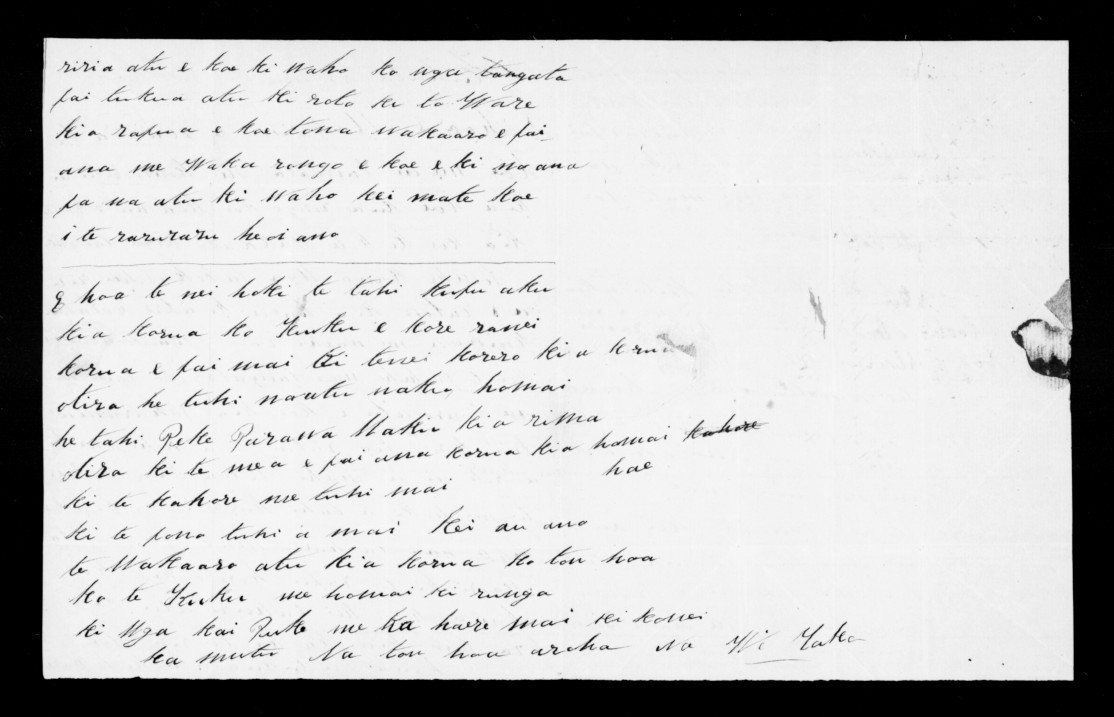 riria atu e koe ki waho ko nga tangata
pai tukua atu ki roto ki to Ware
kia rapua e koe tona wakaaro e pai
ana me Waka rongo e koe e ki na ana
pa na atu ki waho kei mate koe
i te raruraru heoi ano
E hoa te nei hoki te tahi kupu aku
kia korua ko Kuku e kore ranei
korua e pai mai Ki tenei korero ki a korua
otira he tuhi noatu naku, homai
he tahi Peke Parawa Maku kia rima
otira ki te mea e pai ana korua kia homai kahore
hae
ki te kahore me tuhi mai
ki te pono tuhi a mai kei au ano
te Wakaaro atu kia korua ko tou hoa
ko te Kuku me homai ki runga
ki Nga kai Puke me ka haere mai ki konei
ka mutu Na tou hoa aroha Na Wi Tako